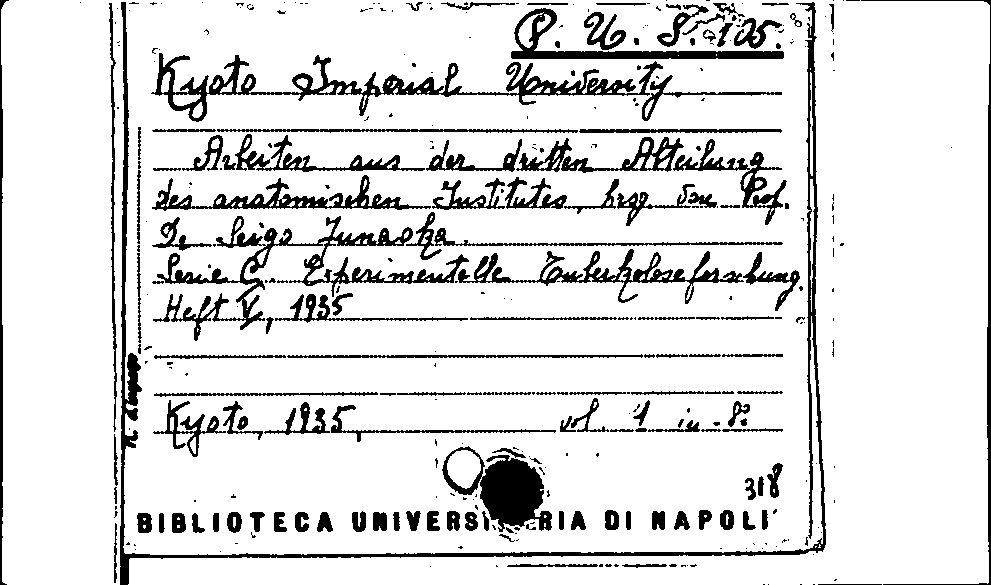 P. U. S. 105.
Kyoto Imperial University.
Arbeiten aus der dritten Abteilung
des anatomischen Institutes, hrsg. von Prof.
Dr Seigo Funaoka.
Serie C. Experimentelle Tuberkoloseforschung.
Heft V, 1935
Kyoto, 1935, vol. 1 in-8º
318
BIBLIOTECA UNIVERSITARIA DI NAPOLI